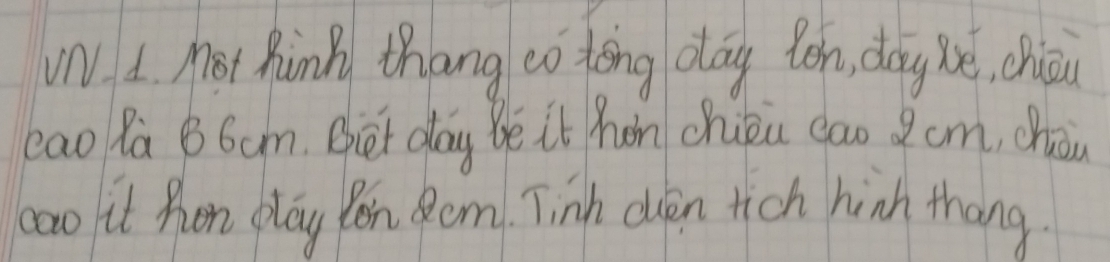 VN 1. Một hình thang có tổng đáy lớn, đáy bé, chiều
cao là 36cm. Biết đáy bé ít hơn chiều cao 2cm, chiều
cao ít hơn đáy lớn 2cm. Tính diện tích hình thang.